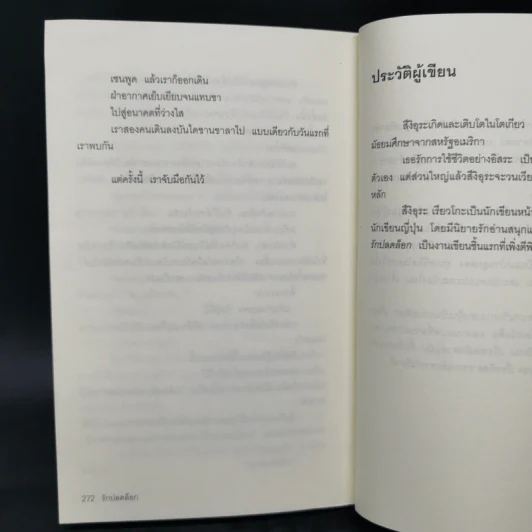 เซนพูด แล้วเราก็ออกเดิน
ฝ่าอากาศเย็บเยียบจนแทบชา
ไปสู่อนาคตที่ว่างใส
เราสองคนเดินลงบันไดชานชาลาไป แบบเดียวกับวันแรกที่
เราพบกัน
แต่ครั้งนี้ เราจับมือกันไว้
272 รักปลดล็อก
ประวัติผู้เขียน
ลีงิอุระเกิดและเติบโตในโตเกียว
มัธยมศึกษาจากสหรัฐอเมริกา
เธอรักการใช้ชีวิตอย่างอิสระ
ตัวเอง แต่ส่วนใหญ่แล้วลีงิอุระจะวนเวีย
หลัก
ลีงิอุระ เรียวโกะเป็นนักเขียนหน้
นักเขียนญี่ปุ่น โดยมีนิยายรักอ่านสนุกแ
รักปลดล็อก เป็นงานเขียนชิ้นแรกที่เพิ่งตีพิ